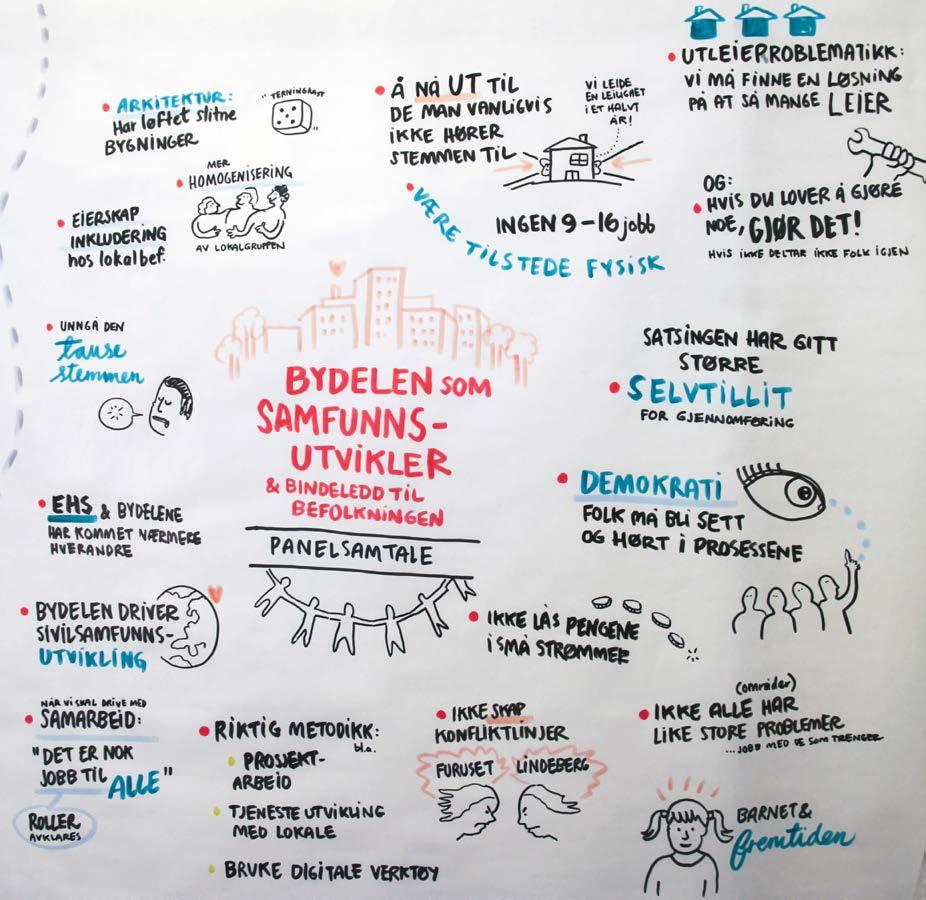 • ARKITEKTUR:
Har løftet slitne
BYGNINGER
"TERNINGKAST"
• MER
HOMOGENISERING
AV LOKALGRUPPEN
• EIERSKAP
INKLUDERING
hos lokalbef.
• Å NÅ UT TIL
DE MAN VANLIGVIS
IKKE HØRER
STEMMEN TIL
VI LEIDE
EN LEILIGHET
I ET HALVT
ÅR!
• VÆRE TILSTEDE FYSISK
INGEN 9-16 jobb
• UTLEIEPROBLEMATIKK:
VI MÅ FINNE EN LØSNING
PÅ AT SÅ MANGE LEIER
OG:
• HVIS DU LOVER Å GJØRE
NOE, GJØR DET!
HVIS IKKE DELTAR IKKE FOLK IGJEN
• UNNGÅ DEN
tause
stemmen
BYDELEN SOM
SAMFUNNS-
UTVIKLER
& BINDELEDD TIL
BEFOLKNINGEN
PANELSAMTALE
SATSINGEN HAR GITT
STØRRE
• SELVTILLIT
FOR GJENNOMFØRING
• DEMOKRATI
FOLK MÅ BLI SETT
OG HØRT I PROSESSENE
• EHS & BYDELENE
HAR KOMMET NÆRMERE
HVERANDRE
• BYDELEN DRIVER
SIVILSAMFUNNS-
UTVIKLING
• IKKE LÅS PENGENE
I SMÅ STRØMMER
NÅR VI SKAL DRIVE MED
• SAMARBEID:
"DET ER NOK
JOBB TIL ALLE"
ROLLER
AVKLARES
• RIKTIG METODIKK:
bl.a.
• PROSJEKT-
ARBEID
• TJENESTE UTVIKLING
MED LOKALE
• BRUKE DIGITALE VERKTØY
• IKKE SKAP
KONFLIKTLINJER
FURUSET LINDEBERG
(områder)
• IKKE ALLE HAR
LIKE STORE PROBLEMER
...JOBB MED DE SOM TRENGER
BARNET &
fremtiden